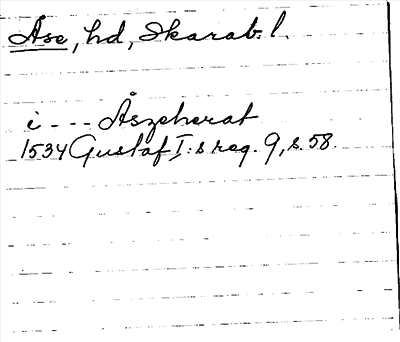 Åse, hd, Skarab. l.
i --- Åszeherat
1534 Gustaf I:s reg. 9, s. 58.